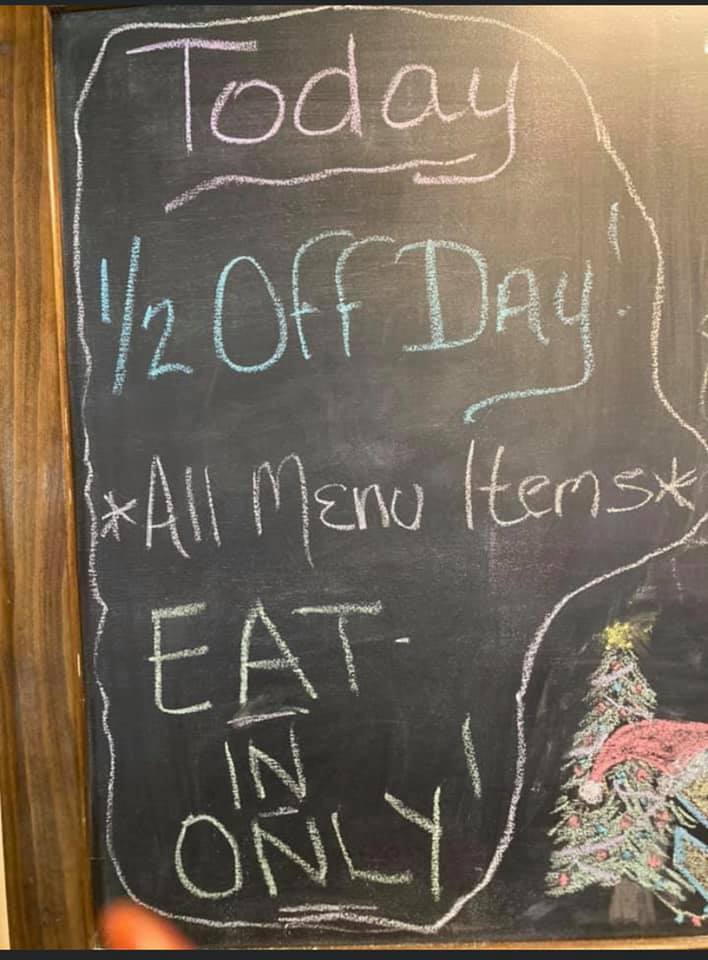 Today
1/2 Off Day!
*All Menu Items*
EAT-
IN
ONLY!